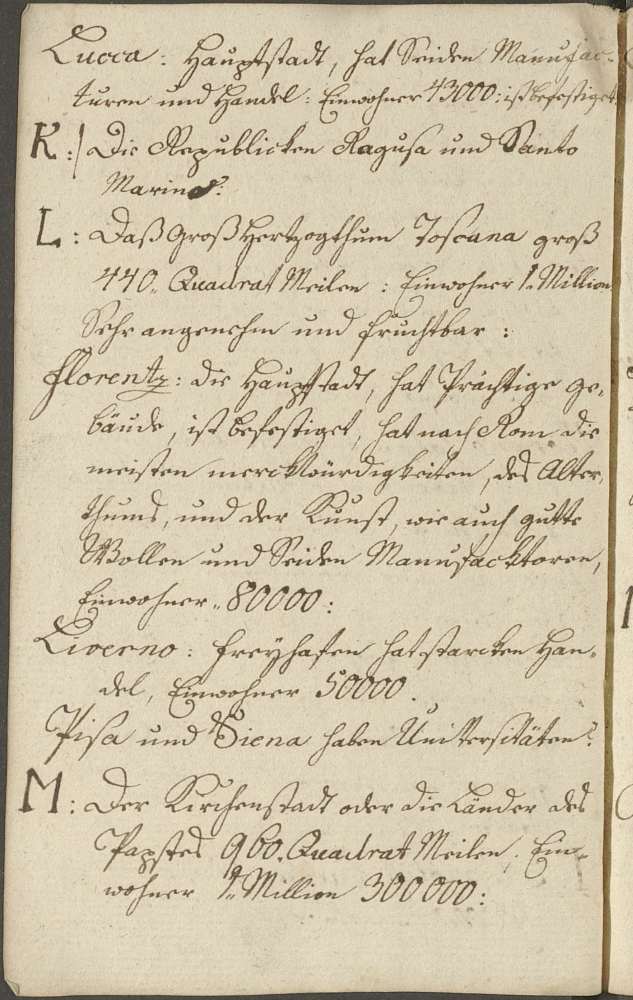 Lucca: Hauptstadt, hat Seiden Manufac-
turen und Handel: Einwohner 43000: ist befestiget
K:/ Die Republicken Ragusa und Santo
Marino:
L: Daß Großhertzogthum Toscana groß
440„ Quadrat Meilen: Einwohner 1„ Million
Sehr angenehm und fruchtbar:
Florentz: die Hauptstadt, hat Prächtige ge„
bäude, ist befestiget, hat nach Rom die
meisten merckwürdigkeiten, des Alter„
thums, und der Kunst, wie auch gutte
Wollen und Seiden Manufacktoren,
Einwohner„ 80000:
Liverno: Freyhafen hat starcken Han„
del, Einwohner 50000.
Pisa und Siena haben Unitversitäten:
M: Der Kirchenstadt oder die Länder des
Papstes 960. Quadrat Meilen. Ein„
wohner 2„ Million 300000: